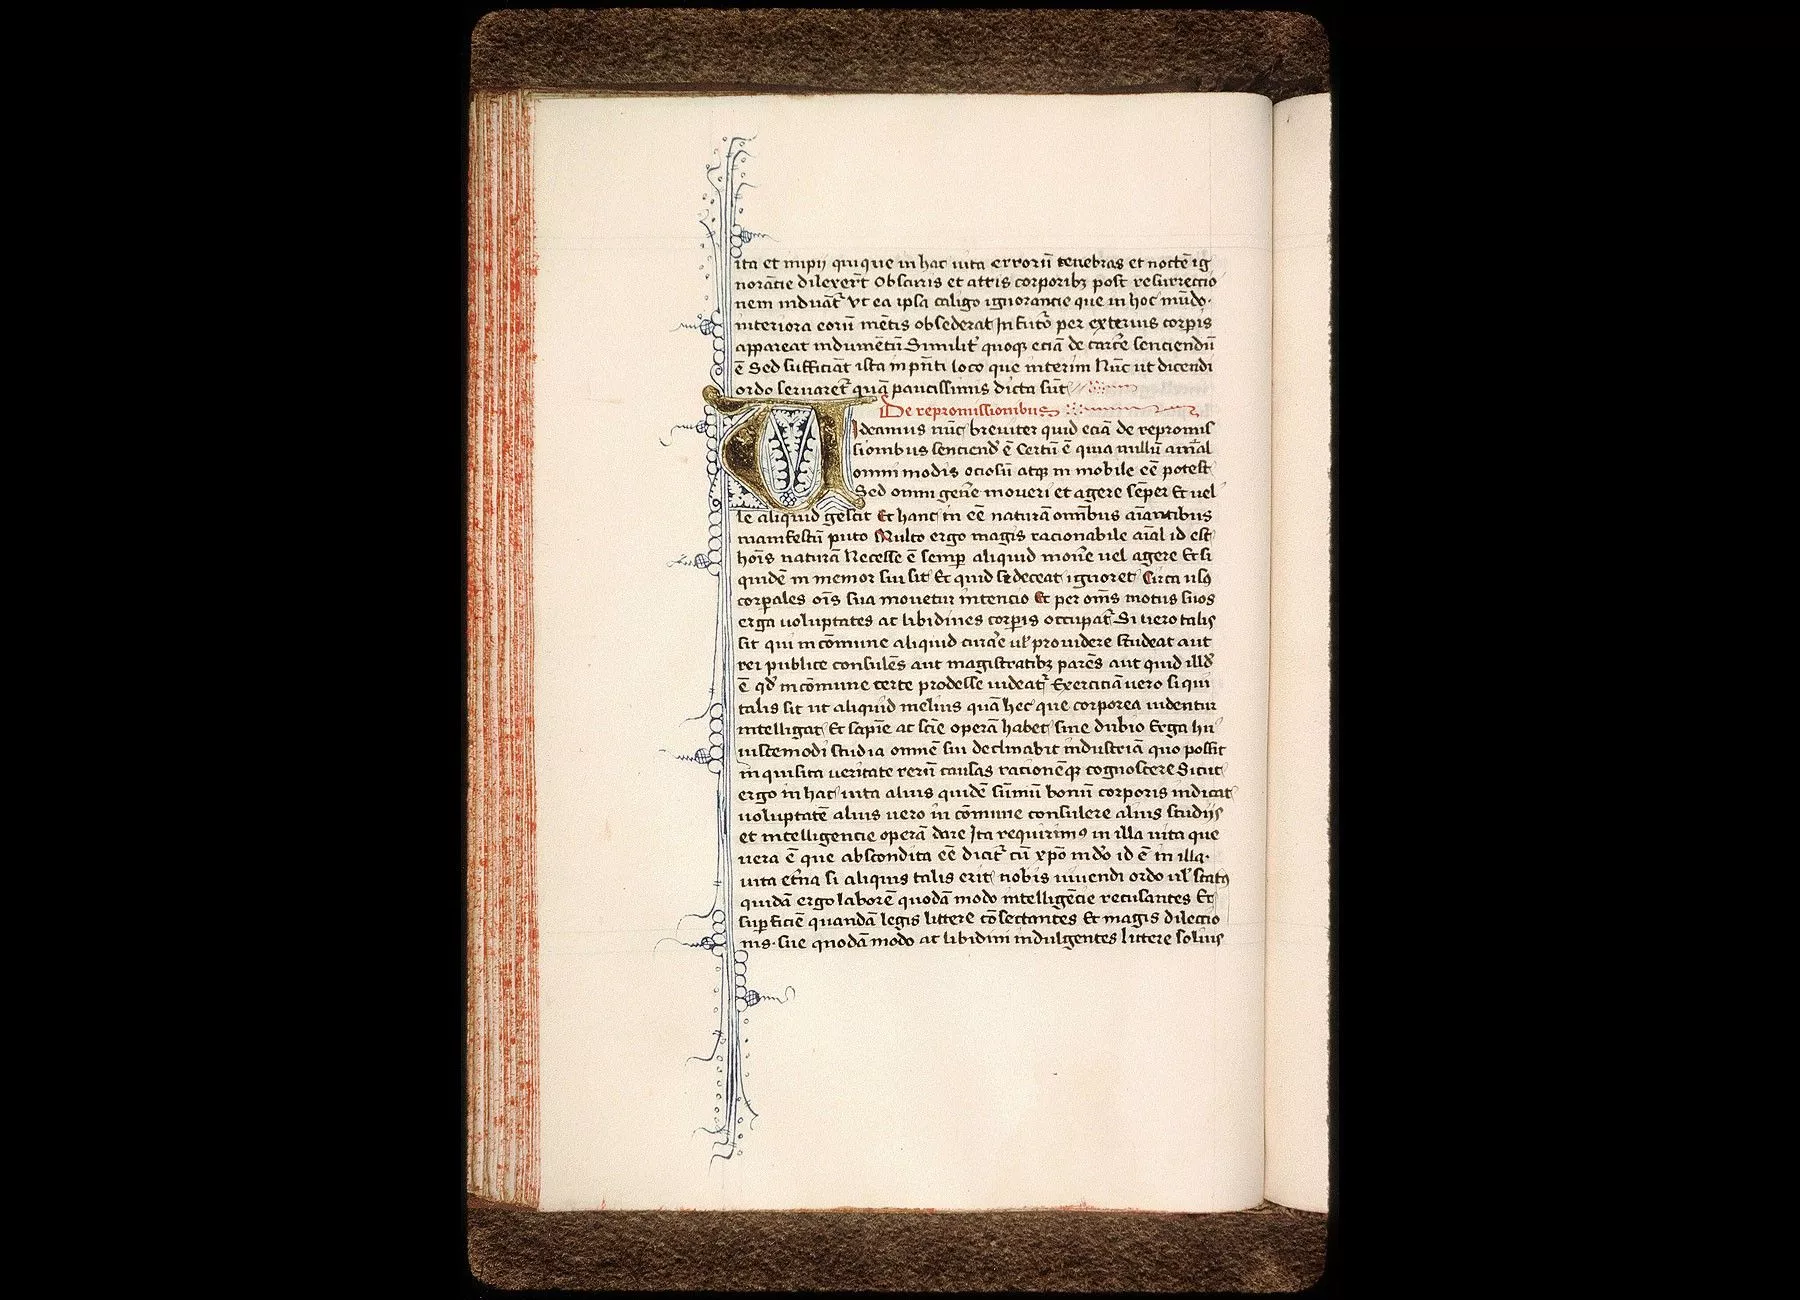 ita et impij quique in hac uita errorū tenebras et noctē ig
norācie dilexer̄t Obscuris et attis corporibꝫ post resurrectio
nem induāt᷑ vt ea ipsa caligo ignorancie que in hoc mūdo·
interiora eorū mētis obsederat In futō per exterius corpis
appareat indumētū Similit᷑ quoqꝫ eciā de carc̄e senciendū
ē Sed sufficiāt ista in pn̄ti loco que interim Nūc ut dicendi
ordo seruaret᷑ quā paucissimis dicta sūt
De repromissionibus
VIdeamus nūc breuiter quid eciā de repromis
sionibus senciend̄ ē Certū ē quia nullū aīal
omni modis ociosū atqꝫ in mobile eē potest
Sed omni gen̄e moueri et agere sēper Et uel
le aliquid gestit Et hanc in eē naturā omībus aīantibus
manifestū puto Multo ergo magis racionabile aīal id est
hoīs naturā Necesse ē semꝑ aliquid mou̅e uel agere Et si
quidē in memor sui sit Et quid se deceat ignoret Circa usꝰ
corpales oīs sua mouetur intencio Et per oēs motus suos
erga uoluptates ac libidines corpis occupat᷑ Si uero talis
sit qui in cōmune aliquid curae ul̄ prouidere studeat aut
rei publice consulēs aut magistratibꝫ parēs aut quid illd̄
ē qd̄ in cōmune certe prodesse uideat᷑ Exerciciā uero si qui
talis sit ut aliquid melius quā hec que corporea uidentur
intelligat Et sapiē ac sciē operā habet sine dubio Erga hu
iuscemodi studia omnē sui declinabit industriā quo possit
in quisita ueritate rerū causas racionēqꝫ cognoscere Sicut
ergo in hac uita alius quidē sūmū bonū corporis indicat
uoluptatē alius uero in cōmune consulere alius studijs
et intelligencie operā dare Ita requirimꝰ in illa uita que
uera ē que abscondita eē dicit᷑ cū xpō in dō id ē in illa·
uita et̄na si aliquis talis erit nobis uiuendi ordo ul̄ statꝰ
quidā ergo laborē quodā modo intelligēcie recusantes Et
suꝑficiē quandā legis littere cōsectantes Et magis dilectio
nis· sue quodā modo ac libidini indulgentes littere solius